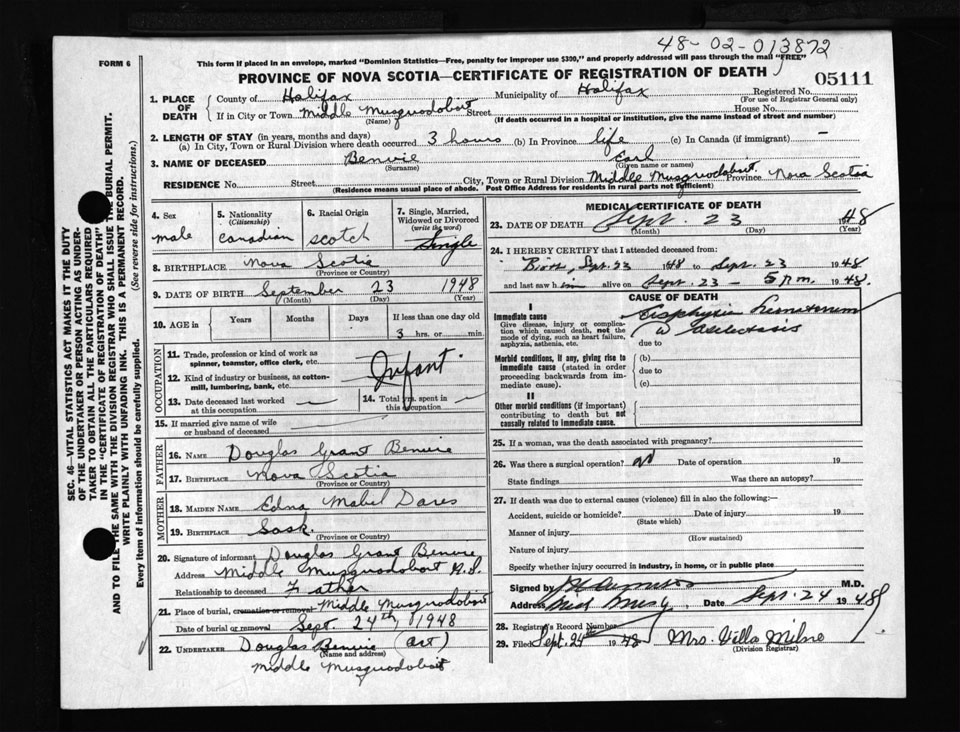 48-02-013872
FORM 6
This form if placed in an envelope, marked "Dominion Statistics—Free, penalty for improper use $300," and properly addressed will pass through the mail "FREE"
PROVINCE OF NOVA SCOTIA—CERTIFICATE OF REGISTRATION OF DEATH
05111
1. PLACE OF DEATH
County of Halifax Municipality of Halifax Registered No.
(For use of Registrar General only)
If in City or Town Middle Musquodoboit Street House No.
(Name) (If death occurred in a hospital or institution, give the name instead of street and number)
2. LENGTH OF STAY (in years, months and days)
(a) In City, Town or Rural Division where death occurred 3 hours (b) In Province life (c) In Canada (if immigrant) —
3. NAME OF DECEASED Benvie Earl
(Surname) (Given name or names)
RESIDENCE No. Street City, Town or Rural Division Middle Musquodoboit Province Nova Scotia
(Residence means usual place of abode. Post Office Address for residents in rural parts not sufficient)
4. Sex
male
5. Nationality
(Citizenship)
Canadian
6. Racial Origin
Scotch
7. Single, Married, Widowed or Divorced
(write the word)
Single
8. BIRTHPLACE Nova Scotia
(Province or Country)
9. DATE OF BIRTH September 23 1948
(Month) (Day) (Year)
10. AGE in Years Months Days If less than one day old
3 hrs. or min.
OCCUPATION
11. Trade, profession or kind of work as spinner, teamster, office clerk, etc.
12. Kind of industry or business, as cotton-mill, lumbering, bank, etc.
Infant
13. Date deceased last worked at this occupation —
14. Total yrs. spent in this occupation —
15. If married give name of wife or husband of deceased —
FATHER
16. NAME Douglas Grant Benvie
17. BIRTHPLACE Nova Scotia
(Province or Country)
MOTHER
18. MAIDEN NAME Edna Mabel Dares
19. BIRTHPLACE Sask.
(Province or Country)
20. Signature of informant Douglas Grant Benvie
Address Middle Musquodoboit N.S.
Relationship to deceased Father
21. Place of burial, cremation or removal Middle Musquodoboit
Date of burial or removal Sept 24th 1948
22. UNDERTAKER Douglas Benvie (act)
(Name and address)
Middle Musquodoboit
MEDICAL CERTIFICATE OF DEATH
23. DATE OF DEATH Sept. 23 1948
(Month) (Day) (Year)
24. I HEREBY CERTIFY that I attended deceased from:
Birth, Sept. 23 1948 to Sept. 23 1948
and last saw him alive on Sept. 23 – 5 p.m. 1948.
CAUSE OF DEATH
I
Immediate cause
Give disease, injury or complication which caused death, not the mode of dying, such as heart failure, asphyxia, asthenia, etc.
Asphyxia
due to
Morbid conditions, if any, giving rise to immediate cause (stated in order proceeding backwards from immediate cause).
(b)
due to
(c)
II
Other morbid conditions (if important) contributing to death but not causally related to immediate cause.
25. If a woman, was the death associated with pregnancy?
26. Was there a surgical operation? no Date of operation 19
State findings Was there an autopsy?
27. If death was due to external causes (violence) fill in also the following:—
Accident, suicide or homicide? Date of injury 19
(State which)
Manner of injury
(How sustained)
Nature of injury
Specify whether injury occurred in industry, in home, or in public place
Signed by M.D.
Address Date Sept. 24 1948
28. Registrar's Record Number
29. Filed Sept. 24th 1948 Mrs. Villa Milne
(Division Registrar)
SEC. 46—VITAL STATISTICS ACT MAKES IT THE DUTY
OF THE UNDERTAKER OR PERSON ACTING AS UNDER-
TAKER TO OBTAIN ALL THE PARTICULARS REQUIRED
IN THE "CERTIFICATE OF REGISTRATION OF DEATH" AND TO FILE THE SAME WITH THE DIVISION REGISTRAR WHO SHALL ISSUE THE BURIAL PERMIT.
WRITE PLAINLY WITH UNFADING INK. THIS IS A PERMANENT RECORD.
Every item of information should be carefully supplied. (See reverse side for instructions.)